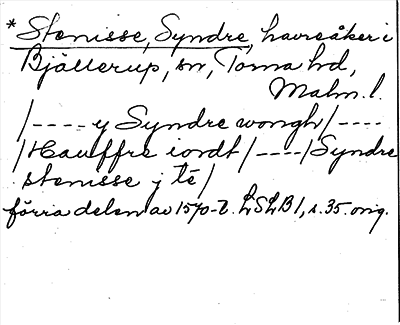 * Stenisse, Syndre, havreåker i
Bjällerup, sn, Torna hd,
Malm. l.
/---- y Syndre wongh/----
/Hauffre iordt/----/Syndre
stenisse j tē/
förra delen av 1570-t. LSLB 1, s. 35. orig.